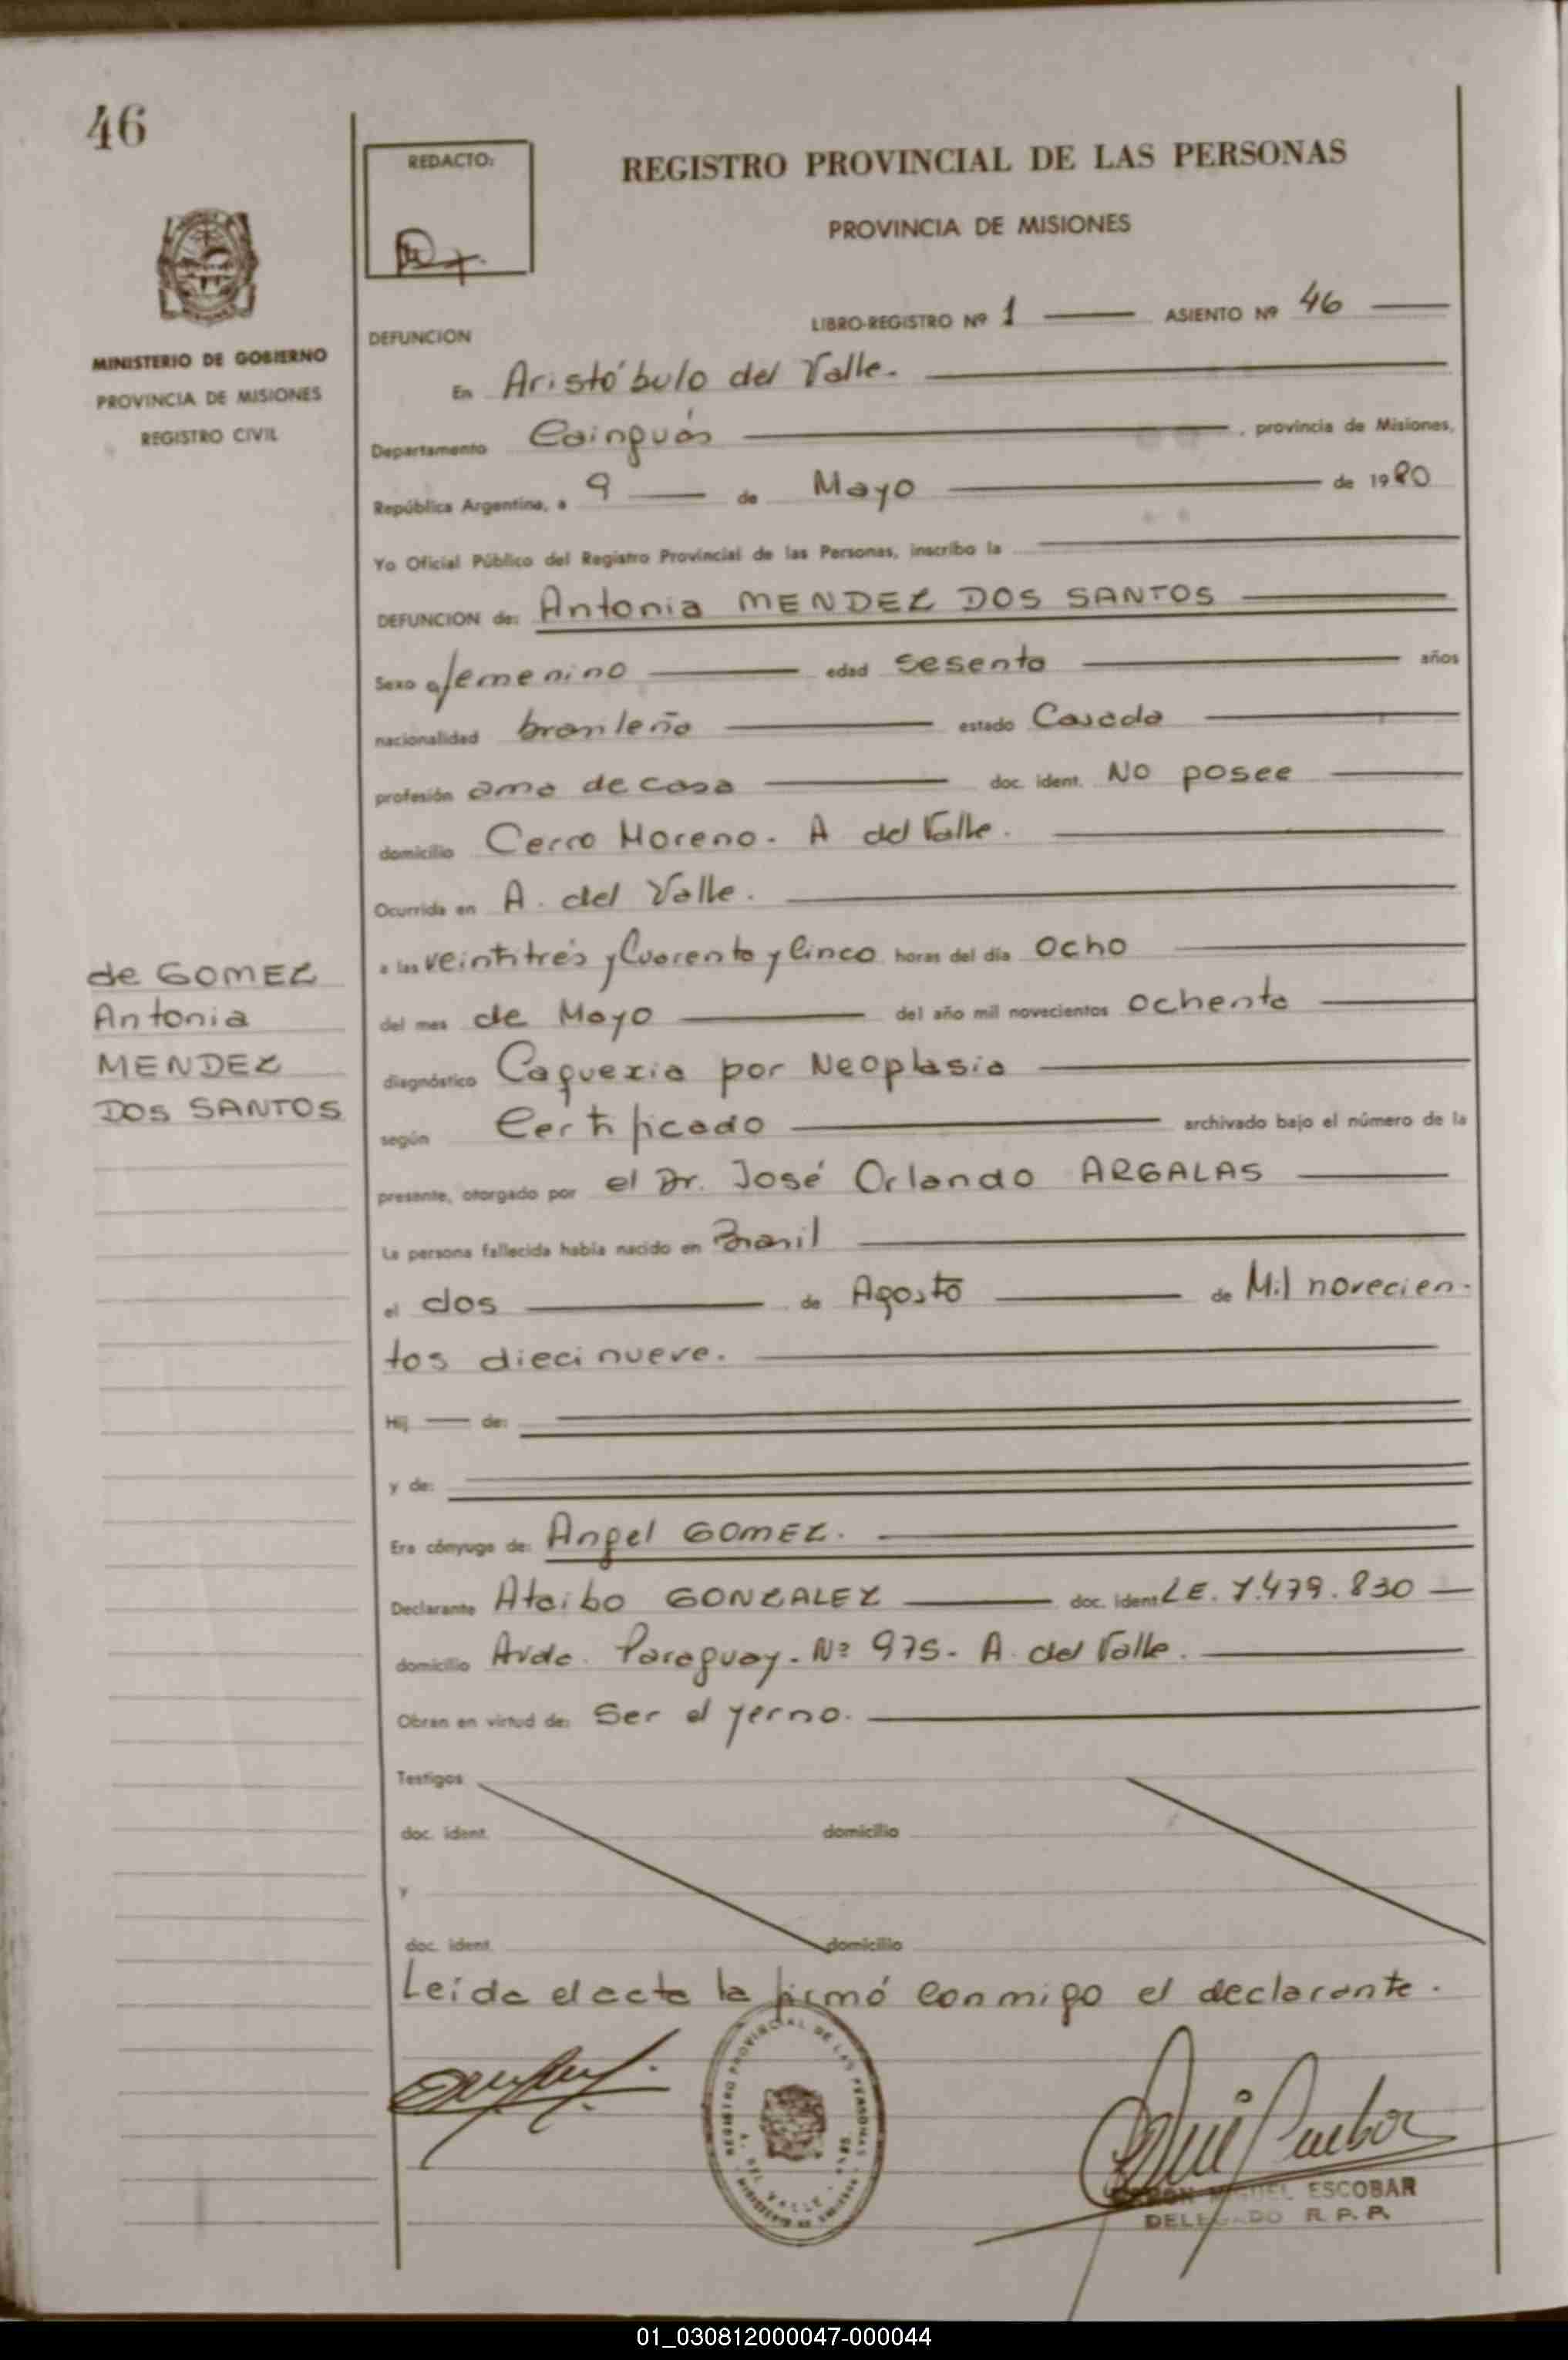 46
REDACTO:
REGISTRO PROVINCIAL DE LAS PERSONAS
PROVINCIA DE MISIONES
MINISTERIO DE GOBIERNO
PROVINCIA DE MISIONES
REGISTRO CIVIL
LIBRO-REGISTRO Nº 1 ASIENTO Nº 46
DEFUNCION
En Aristóbulo del Valle.
Departamento Cainguás, provincia de Misiones,
República Argentina, a 9 de Mayo de 1980
Yo Oficial Público del Registro Provincial de las Personas, inscribo la
DEFUNCION de: Antonia MENDEZ DOS SANTOS
Sexo femenino edad sesenta años
nacionalidad brasileña estado Casada
profesión ama de casa doc. ident. No posee
domicilio Cerro Moreno. A del Valle.
Ocurrida en A. del Valle.
a las veintitrés y Cuarenta y Cinco horas del día ocho
del mes de Mayo del año mil novecientos ochenta
diagnóstico Caquexia por Neoplasia
según Certificado archivado bajo el número de la
presente, otorgado por el Dr. José Orlando ARGALAS
La persona fallecida había nacido en Brasil
el dos de Agosto de Mil novecien-
tos diecinueve.
Hij de:
y de:
Era cónyuge de: Angel GOMEZ.
Declarante Ataibo GONZALEZ doc. ident. L E. 7.479.830
domicilio Avda. Paraguay. Nº 975- A. del Valle.
Obran en virtud de: Ser el yerno.
Testigos
doc. ident. domicilio
y
doc. ident. domicilio
Leída el acta la firmó conmigo el declarante.
de GOMEZ
Antonia
MENDEZ
DOS SANTOS
REGISTRO PROVINCIAL DE LAS PERSONAS
A. DEL VALLE
MIGUEL ESCOBAR
DELEGADO R. P. P.
01_030812000047-000044